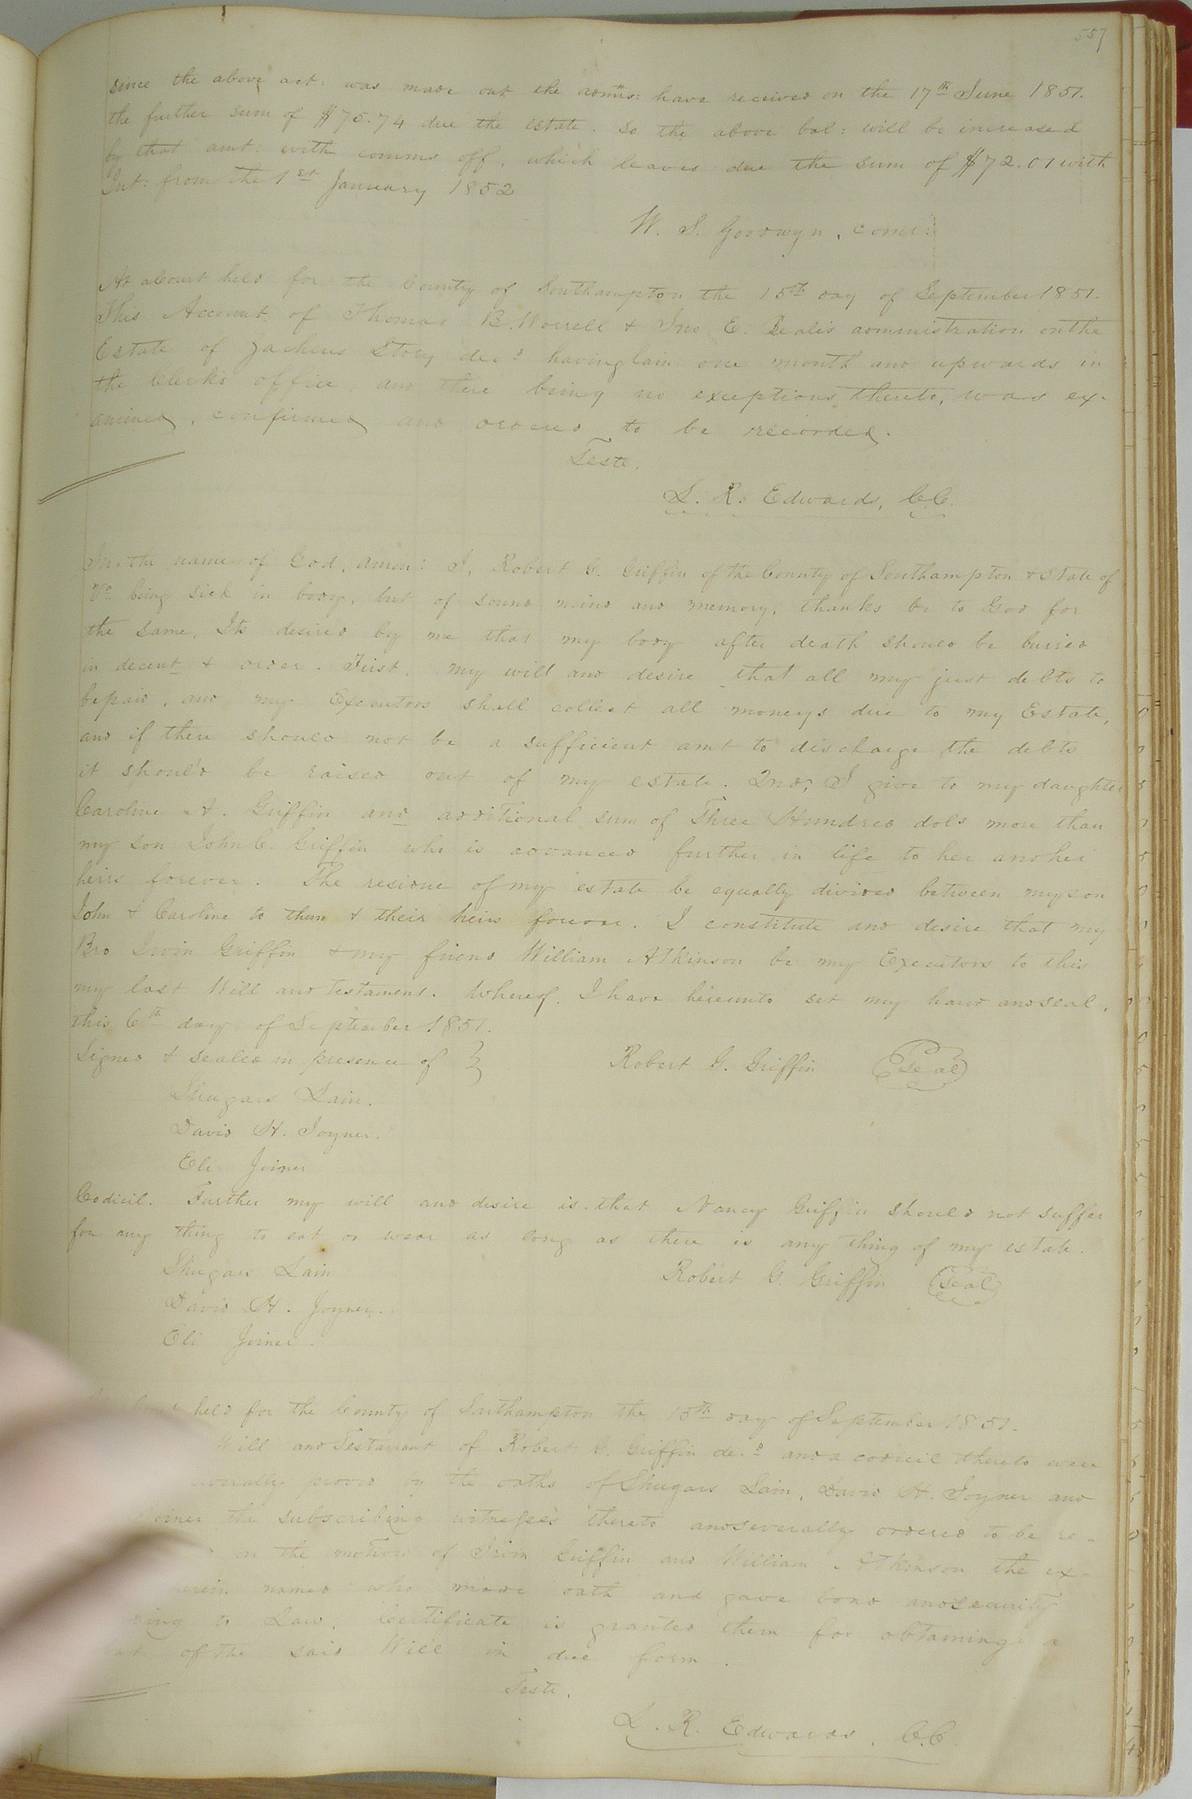 557
since the above act: was made out the admrs: have received on the 17th June 1851.
the further sum of $75.74 due the estate. So the above bal: will be increased
by that amt: with comms off, which leaves due the sum of $72.01 with
Int: from the 1st January 1852
W. S. Goodwyn, comr:
At a Court held for the County of Southampton the 15th day of September 1851.
This Account of Thomas B. Worrell & Jno E. Beal's administration on the
Estate of Zacheus Story decd having lain one month and upwards in
the Clerk's office, and there being no exceptions thereto, was ex-
amined, confirmed and ordered to be recorded.
Teste.
L. R. Edwards, C.C.
In the name of God, amen: I, Robert G. Griffin of the County of Southampton & State of
Va being sick in body, but of sound mind and memory, thanks be to God for
the same, Its desired by me that my body after death should be buried
in decent & order. First, my will and desire that all my just debts to
be paid, and my Executors shall collect all moneys due to my Estate,
and if there should not be a sufficient amt to discharge the debts
it should be raised out of my estate. 2nd, I give to my daughter
Caroline A. Griffin and additional sum of Three Hundred dols more than
my son John C. Griffin who is advanced further in life to her and her
heirs forever. The residue of my estate be equally divided between my son
John & Caroline to them & their heirs forever. I constitute and desire that my
Bro Irvin Griffin & my friend William Atkinson be my Executors to this
my last Will and Testament. Whereof, I have hereunto set my hand and seal,
this 6th day of September 1851.
Signed & sealed in presence of } Robert G. Griffin (Seal)
Shugars Lain.
David H. Joyner.
Eli Joiner
Codicil. Further my will and desire is that Nancy Griffin should not suffer
for any thing to eat or wear as long as there is any thing of my estate.
Shugars Lain Robert G. Griffin (Seal)
David H. Joyner.
Eli Joiner
held for the County of Southampton the 15th day of September 1851.
Will and Testament of Robert G. Griffin decd and a codicil thereto were
severally proved by the oaths of Shugars Lain, David H. Joyner and
Joiner the subscribing witnesses thereto and severally ordered to be re-
on the motion of Irvin Griffin and William Atkinson the ex-
named who made oath and gave bond and security
to Law, Certificate is granted them for obtaining a
of the said Will in due form.
Teste.
L. R. Edwards, C.C.